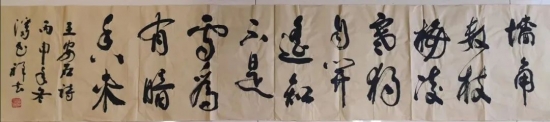 墙角
数枝
梅凌
寒独
自开
遥知
不是
雪为
有暗
香来
王安石诗
丙申年冬